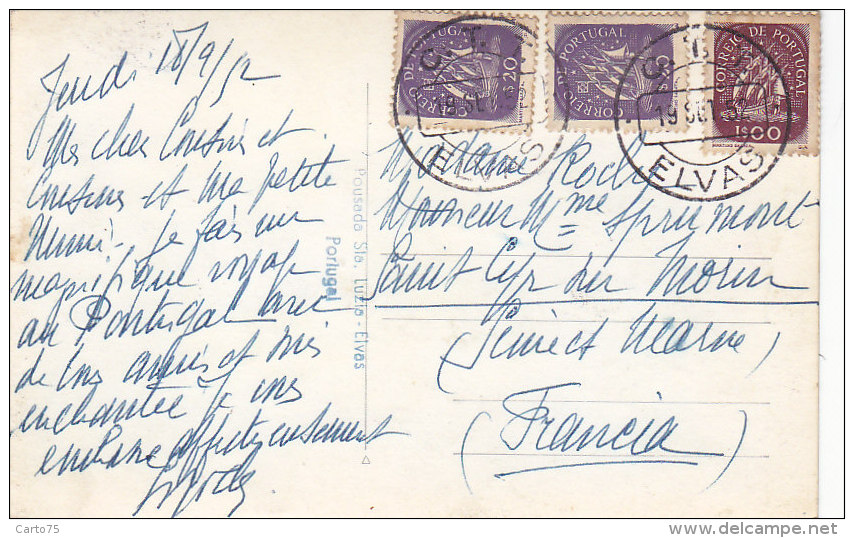 Jeudi 18/9/52
Mes cher Cousins et
Cousines et Ma petite
Mimi. Je fais un
magnifique voyage
au Portugal avec
de bons amis et suis
enchantée Je vous
embrasse affectueusement
Pousada Sta. Luzia - Elvas
Portugal
CORREIO DE PORTUGAL
$20
CORREIO DE PORTUGAL
CORREIO DE PORTUGAL
1$00
C. T. T.
18 SET
ELVAS
C. T. T.
19 52
ELVAS
Madame
Monsieur Mme Sprumont
Saint Cyr sur Morin
(Seine et Marne)
(Francia)
Carto75
delcampe.net